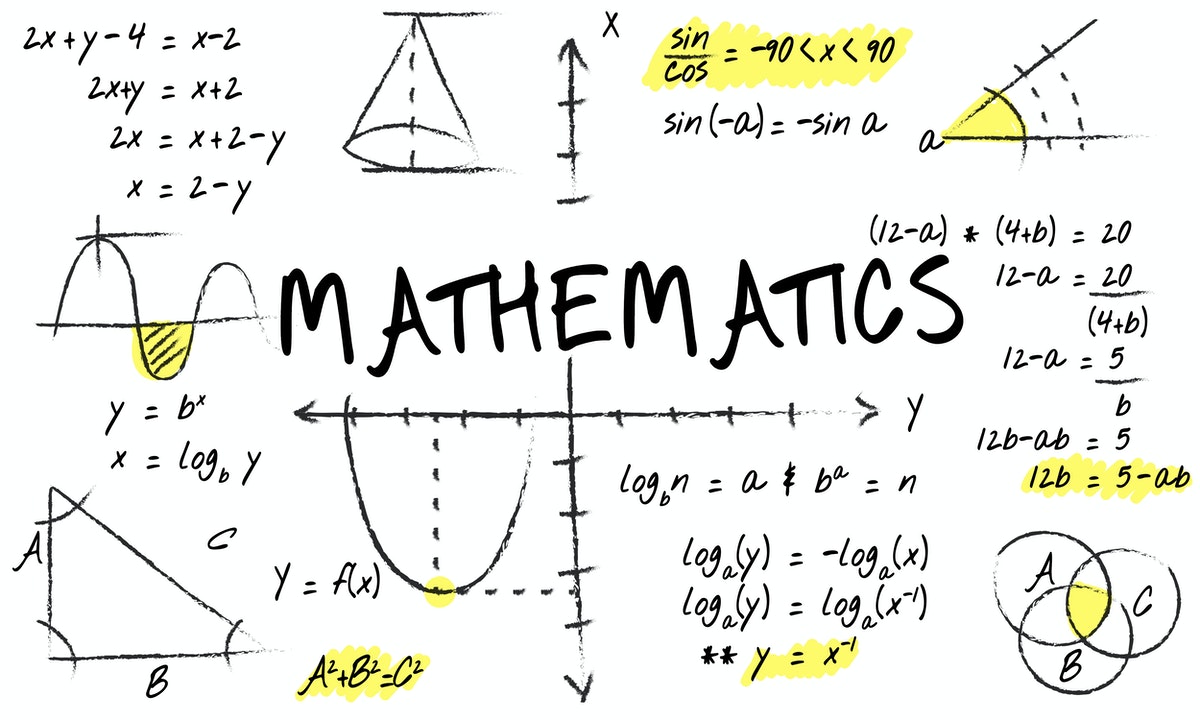 2x+y-4 = x-2
2x+y = x+2
2x = x+2-y
x = 2-y
x
sin/cos = -90<x<90
sin(-a) = -sin a
a
(12-a) * (4+b) = 20
12-a = 20
(4+b)
12-a = 5
b
12b-ab = 5
12b = 5-ab
MATHEMATICS
y = bˣ
x = log_b y
y
A
C
B
Y = f(x)
A²+B²=C²
log_b n = a & bᵃ = n
logₐ(y) = -logₐ(x)
logₐ(y) = logₐ(x⁻¹)
** y = x⁻¹
A
C
B